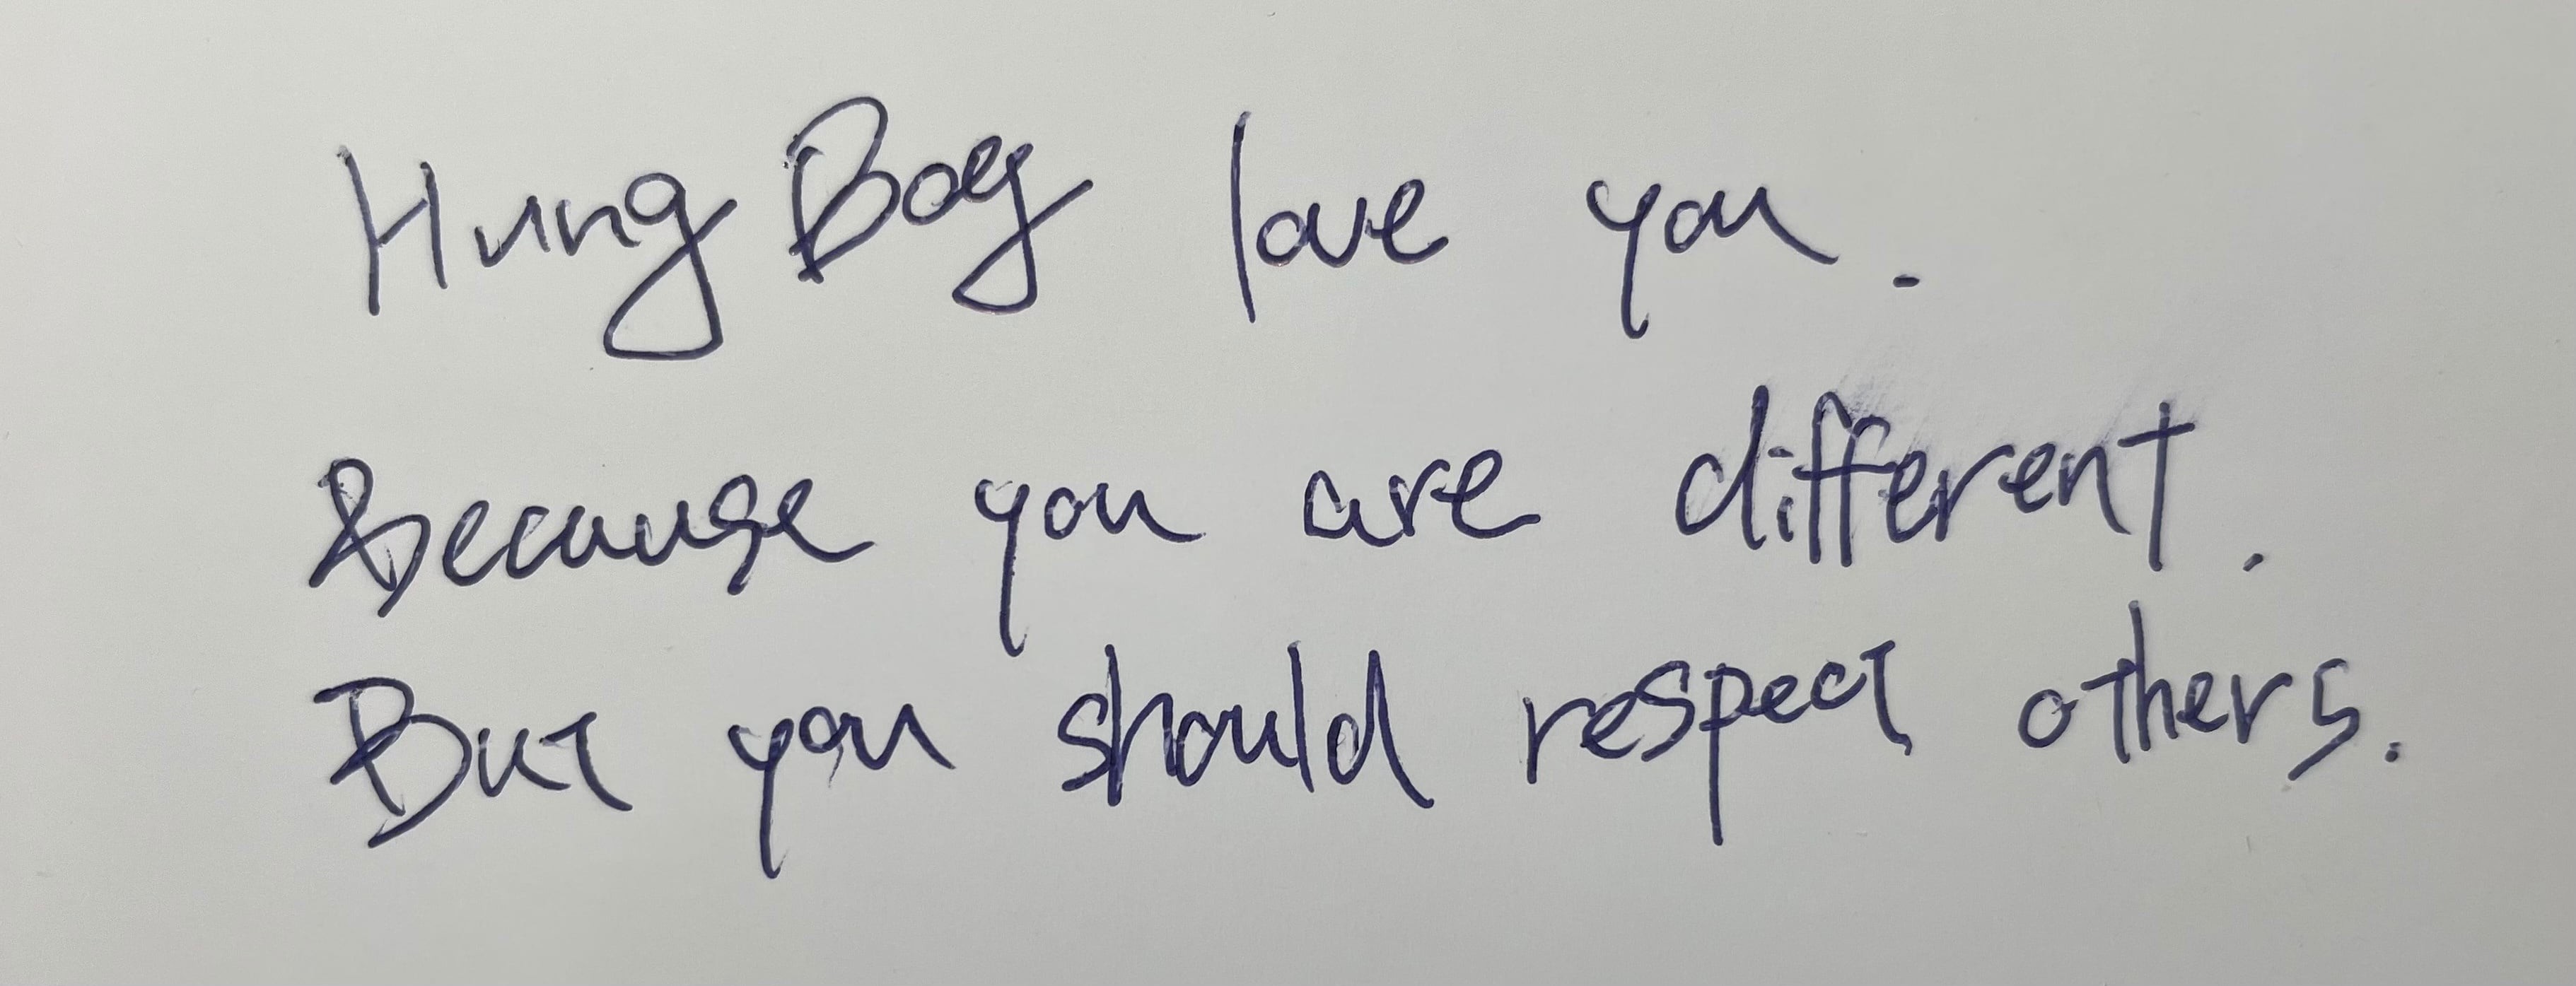 Hung Boy love you.
Because you are different.
But you should respect others.